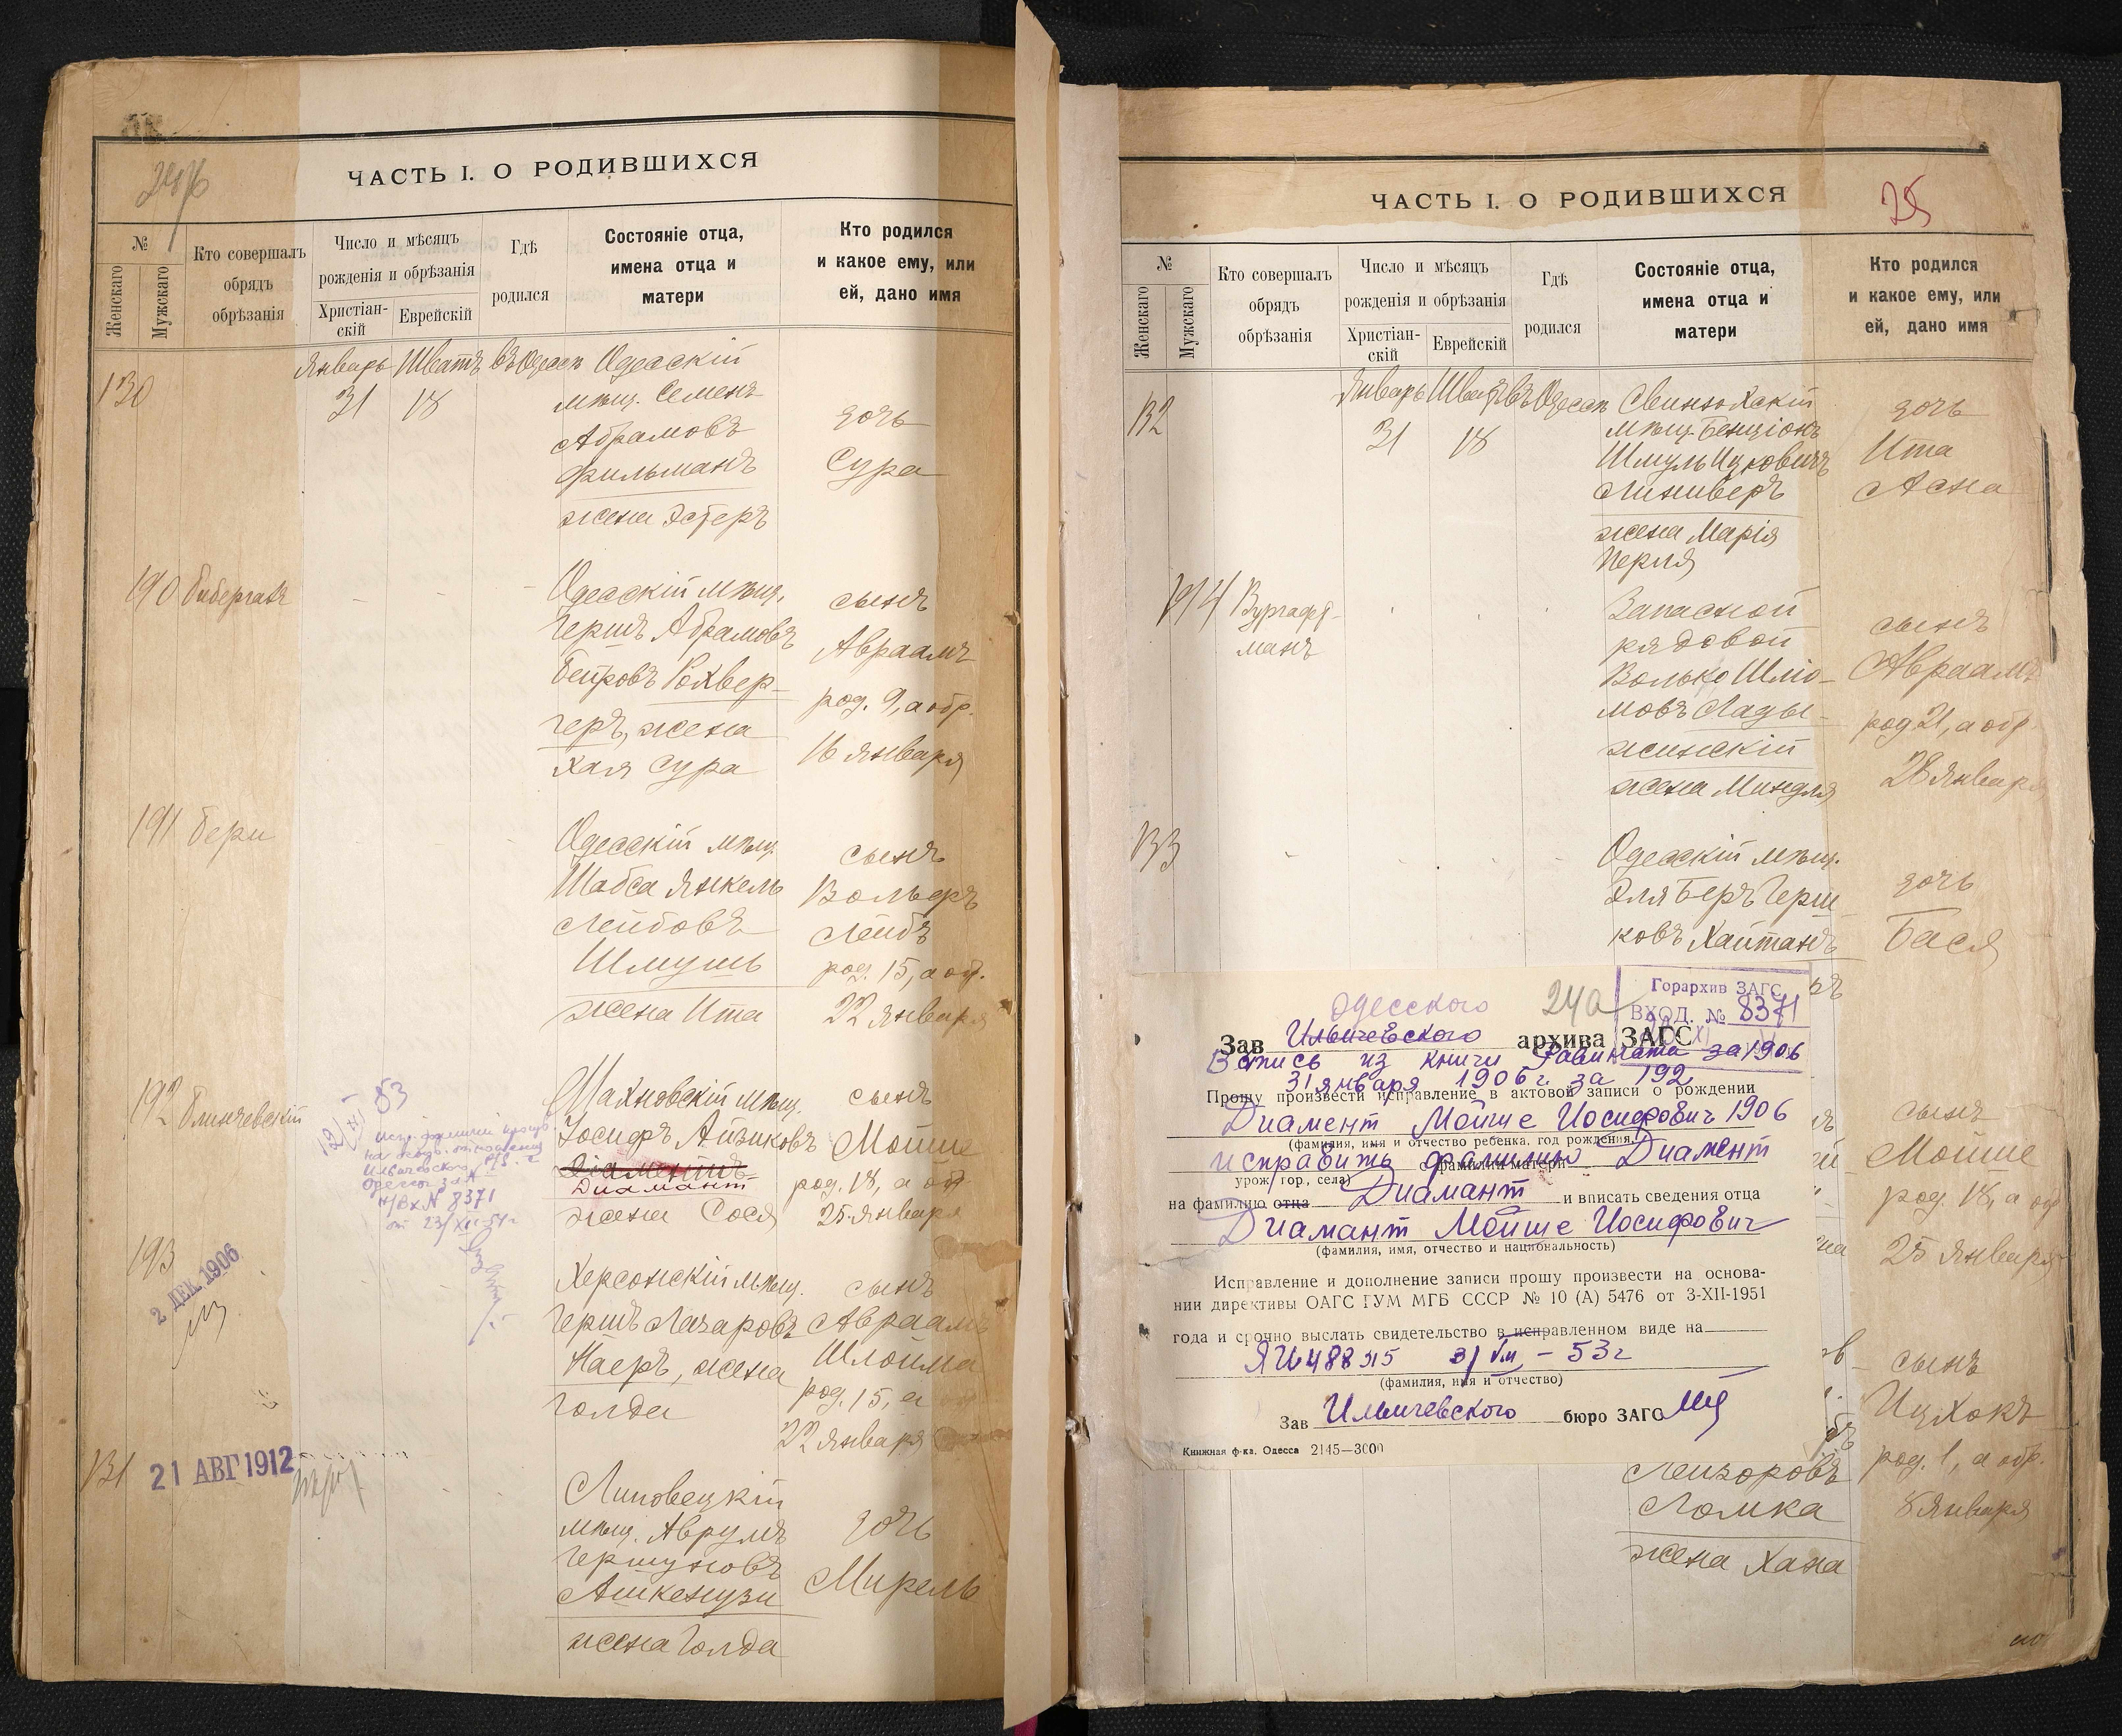 24об
ЧАСТЬ I. О РОДИВШИХСЯ
№
Женскаго
Мужскаго
Кто совершалъ
обрядъ
обрѣзанія
Число и мѣсяцъ
рожденія и обрѣзанія
Христіан-
скій
Еврейскій
Гдѣ
родился
Состояніе отца,
имена отца и
матери
Кто родился
и какое ему, или
ей, дано имя
130
Январь Шватъ въ Одессѣ
31 18
Одесскій
мѣщ. Семенъ
Абрамовъ
Фильманъ
жена Эстеръ
дочь
Сура
190
Одесскій мѣщ.
Гершъ Абрамовъ
Бейровъ Рохвер-
геръ, жена
Хая Сура
сынъ
Авраамъ
род. 9, а обр.
16 Января
191 Бери
Одесскій мѣщ.
Шабса Янкель
Лейбовъ
Шмушъ
жена Ита
сынъ
Вольфъ
Лейбъ
род. 15, а обр.
22 Января
192 Блинчевскій
Махновскій мѣщ.
Іосифъ Айзиковъ
Діаментъ
Диамант
жена Сося
сынъ
Мойше
род. 18, а об
25 Января
№ 8371
193
2 ДЕК. 1906
Херсонскій мѣщ.
Гершъ Лазаровъ
Наеръ, жена
Голда
сынъ
Авраамъ
Шлойма
род. 15, а
22 Января
131
21 АВГ 1912
Липовецкій
мѣщ. Аврумъ
Гершуновъ
Ашкенузи
жена Голда
дочь
Мирель
25
ЧАСТЬ I. О РОДИВШИХСЯ
№
Женскаго
Мужскаго
Кто совершалъ
обрядъ
обрѣзанія
Число и мѣсяцъ
рожденія и обрѣзанія
Христіан-
скій
Еврейскій
Гдѣ
родился
Состояніе отца,
имена отца и
матери
Кто родился
и какое ему, или
ей, дано имя
132
Январь Шватъ въ Одессѣ
31 18
мѣщ. Бенціонъ
Шмуль Ицковичъ
Линиверъ
жена Марія
Перля
дочь
Ита
Асна
194 Вургафт-
манъ
Запасной
рядовой
Волько Шлio-
мовъ Лады-
жинскій
жена Миндля
сынъ
Авраамъ
род 21, а обр.
28 Января
133
Одесскій мѣщ.
Эля Беръ Герш
ковъ Хайтанъ
дочь
Бася
Одесского
24а
Горархив ЗАГС
ВХОД. № 8371
Зав Ильичевского архива ЗАГС
Запись из книги Равината за 1906
31 января 1906 г. за 192
Прошу произвести исправление в актовой записи о рождении
Диамент Мойше Иосифович 1906
(фамилия, имя и отчество ребенка, год рождения,
исправить фамилию Диамент
фамилия матери
урож. гор., села)
на фамилию отца Диамант и вписать сведения отца
Диамант Мойше Иосифович
(фамилия, имя, отчество и национальность)
Исправление и дополнение записи прошу произвести на основа-
нии директивы ОАГС ГУМ МГБ СССР № 10 (А) 5476 от 3-XII-1951
года и срочно выслать свидетельство в исправленном виде на
(фамилия, имя и отчество)
Зав Ильичевского бюро ЗАГС
Книжная ф-ка. Одесса 2145—3000
сынъ
Мойше
род. 18, а об
25 Января
сынъ
Ицхокъ
род. 1, а обр.
8 Января
Лейзоровъ
Ломка
жена Хана